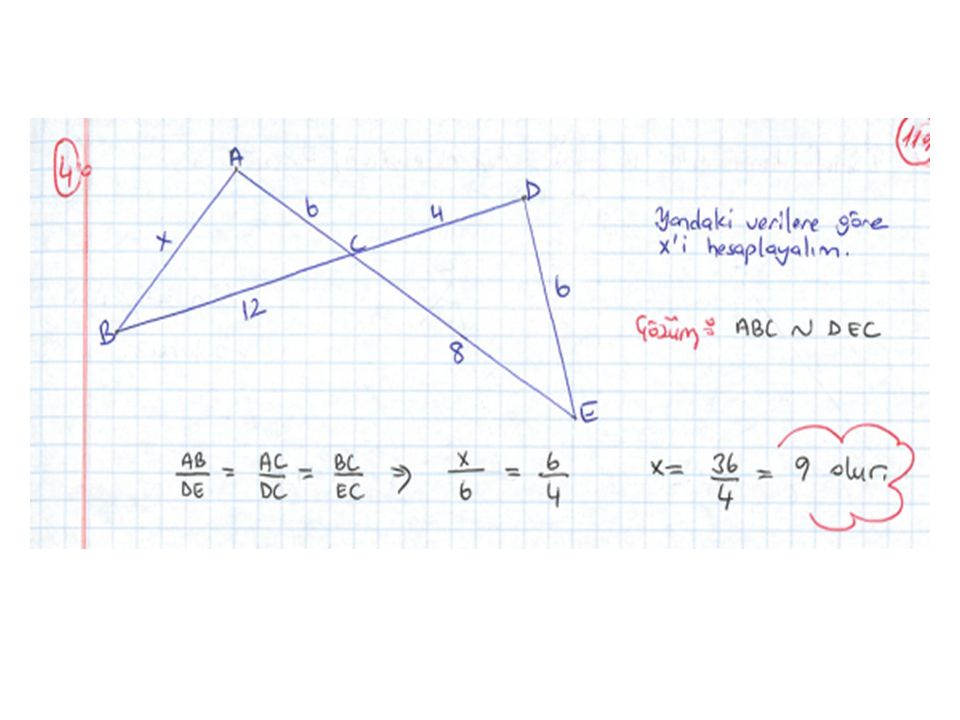 4.
A
D
6
4
x
C
B
12
6
8
E
Yandaki verilere göre
x'i hesaplayalım.
Çözüm: ABC ~ DEC
AB/DE = AC/DC = BC/EC ⇒ x/6 = 6/4 x = 36/4 = 9 olur.